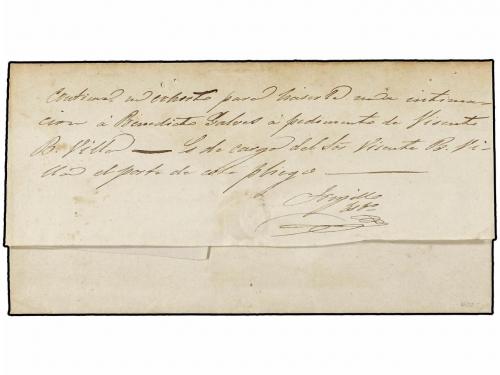 Contiene un exhorto para hacerle una intima-
cion á Benedicto Galves á pedimento de Vicente
B. Villa — Es de cargo del Sor Vicente B. Vi-
lla el porte de este pliego —
Trujillo